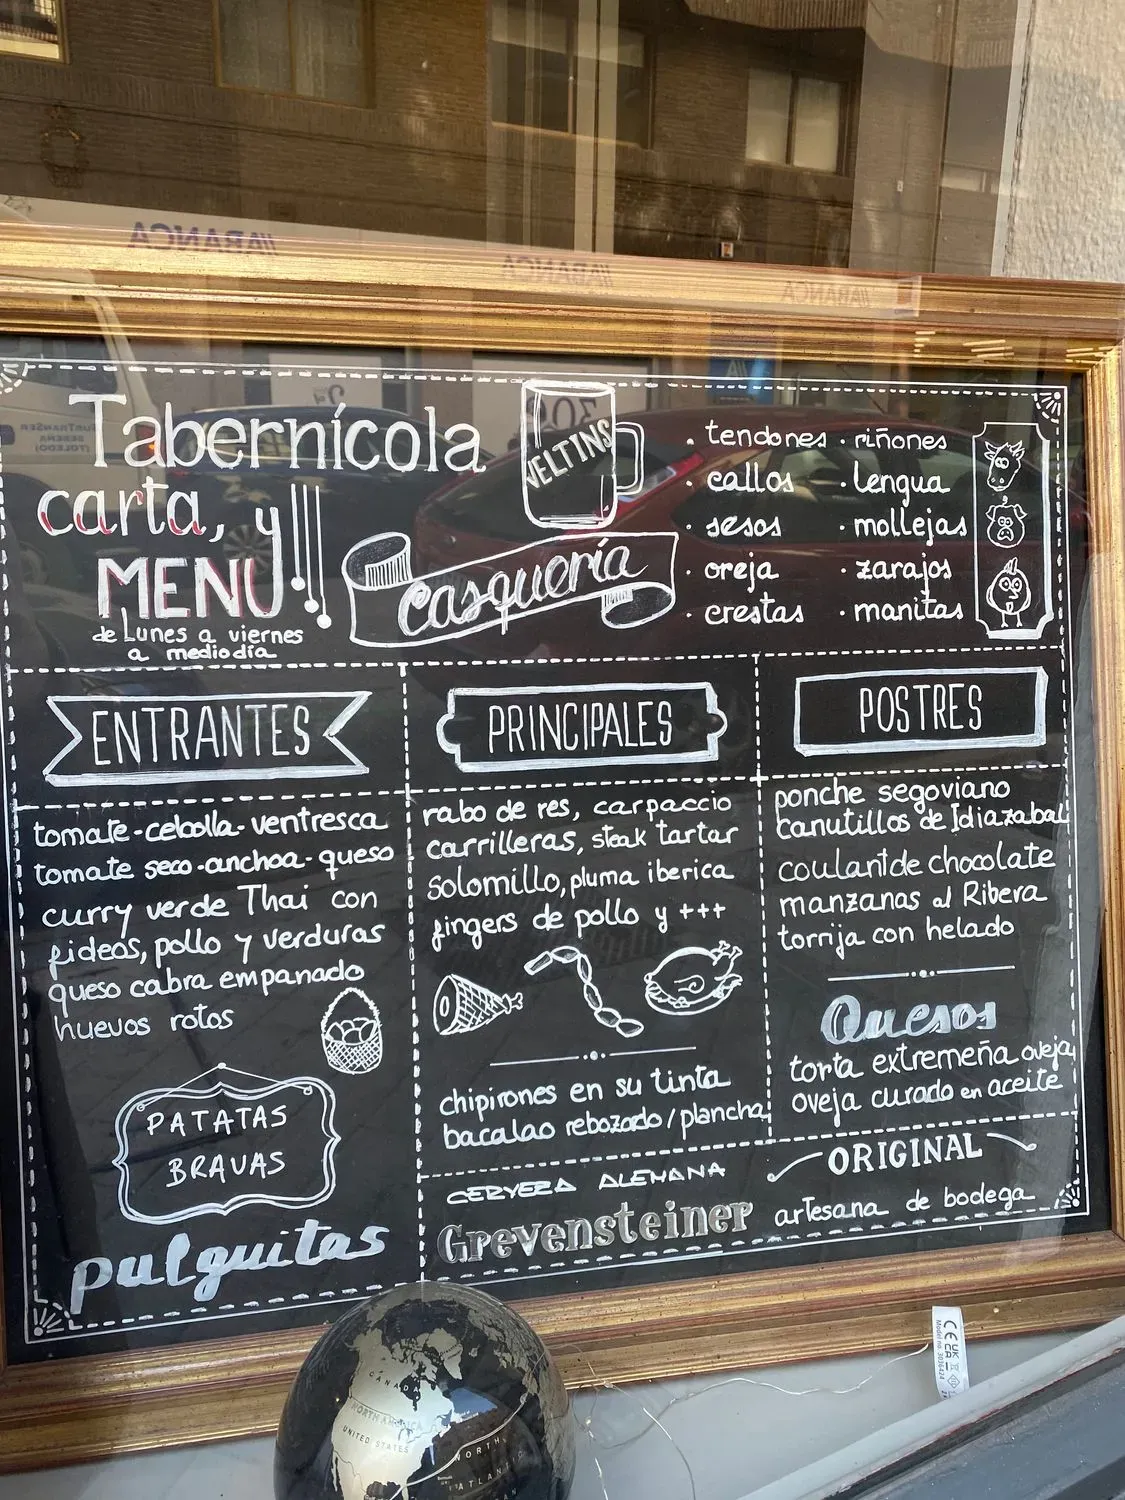 ABANCA
ABANCA
ABANCA
Tabernícola
carta, y
MENU!!
de Lunes a viernes
a mediodía
VELTINS
casquería
. tendones · riñones
· callos · lengua
· sesos · mollejas
· oreja · zarajos
· crestas · manitas
ENTRANTES
tomate-cebolla-ventresca
tomate seco-anchoa-queso
curry verde Thai con
fideos, pollo y verduras
queso cabra empanado
huevos rotos
PATATAS
BRAVAS
pulguitas
PRINCIPALES
rabo de res, carpaccio
carrilleras, steak tartar
solomillo, pluma iberica
fingers de pollo y +++
chipirones en su tinta
bacalao rebozado/plancha
CERVEZA ALEMANA
Grevensteiner
ORIGINAL
artesana de bodega
POSTRES
ponche segoviano
canutillos de Idiazabal
coulant de chocolate
manzanas al Ribera
torrija con helado
Quesos
torta extremeña oveja
oveja curado en aceite
CANADA
NORTH AMERICA
UNITED STATES
NORTH
ATLANTIC
CE UK CA
Model no. 3036424